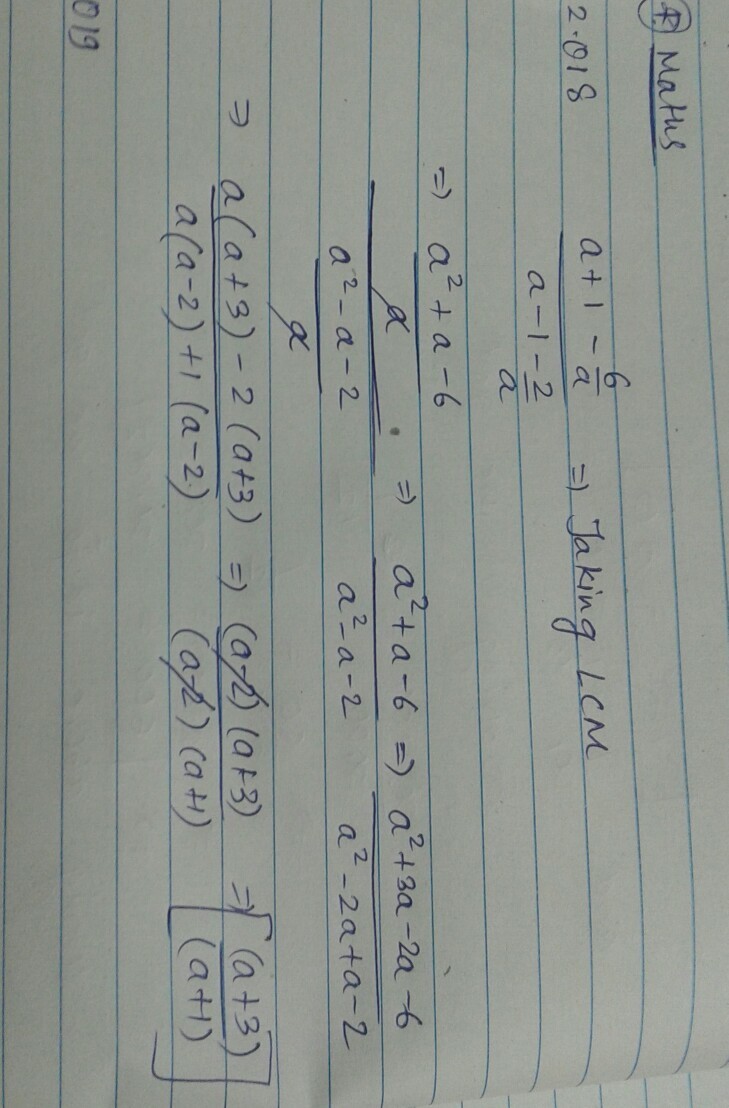 ④ Maths
2.018 (a+1-6/a)/(a-1-2/a) => Taking LCM
=> ((a²+a-6)/a)/((a²-a-2)/a) => (a²+a-6)/(a²-a-2) => (a²+3a-2a-6)/(a²-2a+a-2)
=> (a(a+3)-2(a+3))/(a(a-2)+1(a-2)) => ((a-2)(a+3))/((a-2)(a+1)) => (a+3)/(a+1)
019